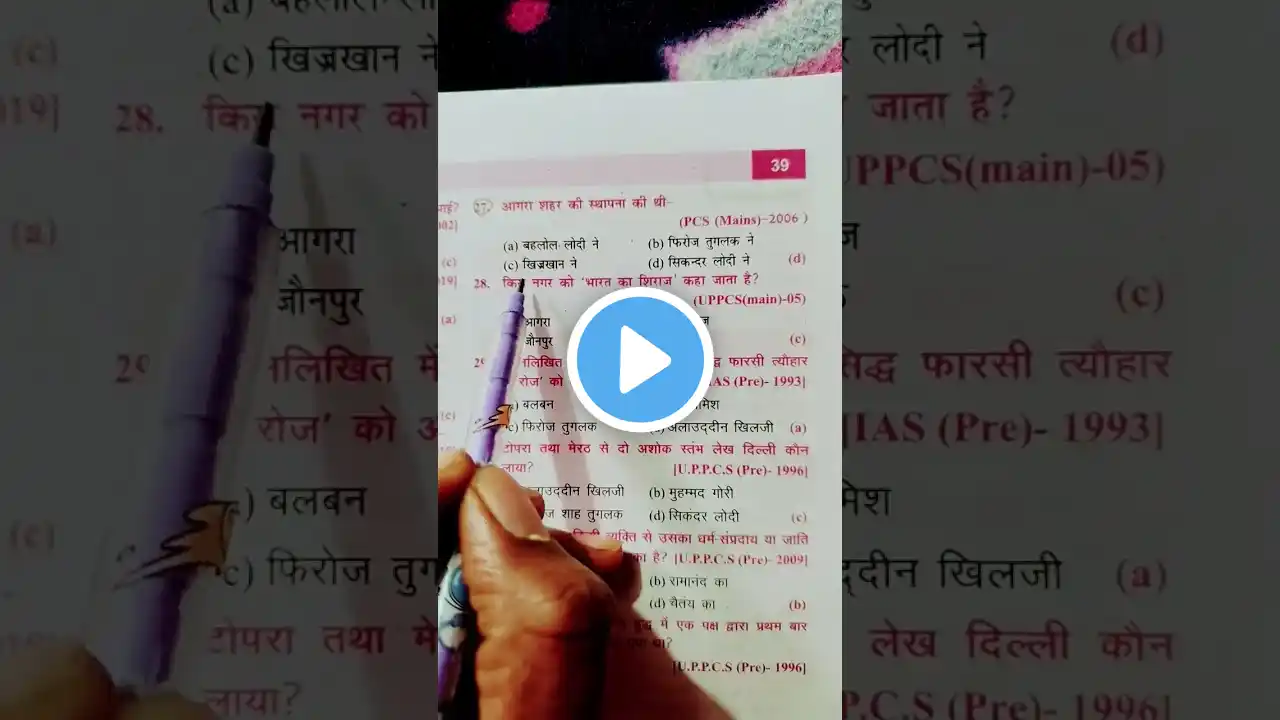 39
27. आगरा शहर की स्थापना की थी–
(PCS (Mains)–2006 )
(a) बहलोल लोदी ने (b) फिरोज तुगलक ने
(c) खिज्रखान ने (d) सिकन्दर लोदी ने (d)
28. नगर को 'भारत का शिराज' कहा जाता है?
(UPPCS(main)-05)
आगरा
जौनपुर (c)
फारसी त्यौहार
रोज' को IAS (Pre)- 1993]
बलबन
(c) फिरोज तुगलक अलाउद्दीन खिलजी (a)
टोपरा तथा मेरठ से दो अशोक स्तंभ लेख दिल्ली कौन
लाया? [U.P.P.C.S (Pre)- 1996]
खिलजी (b) मुहम्मद गोरी
शाह तुगलक (d) सिकंदर लोदी (c)
व्यक्ति से उसका धर्म-संप्रदाय या जाति
का है? [U.P.P.C.S (Pre)- 2009]
(b) रामानंद का
(d) चैतंय का (b)
में एक पक्ष द्वारा प्रथम बार
[U.P.P.C.S (Pre)- 1996]